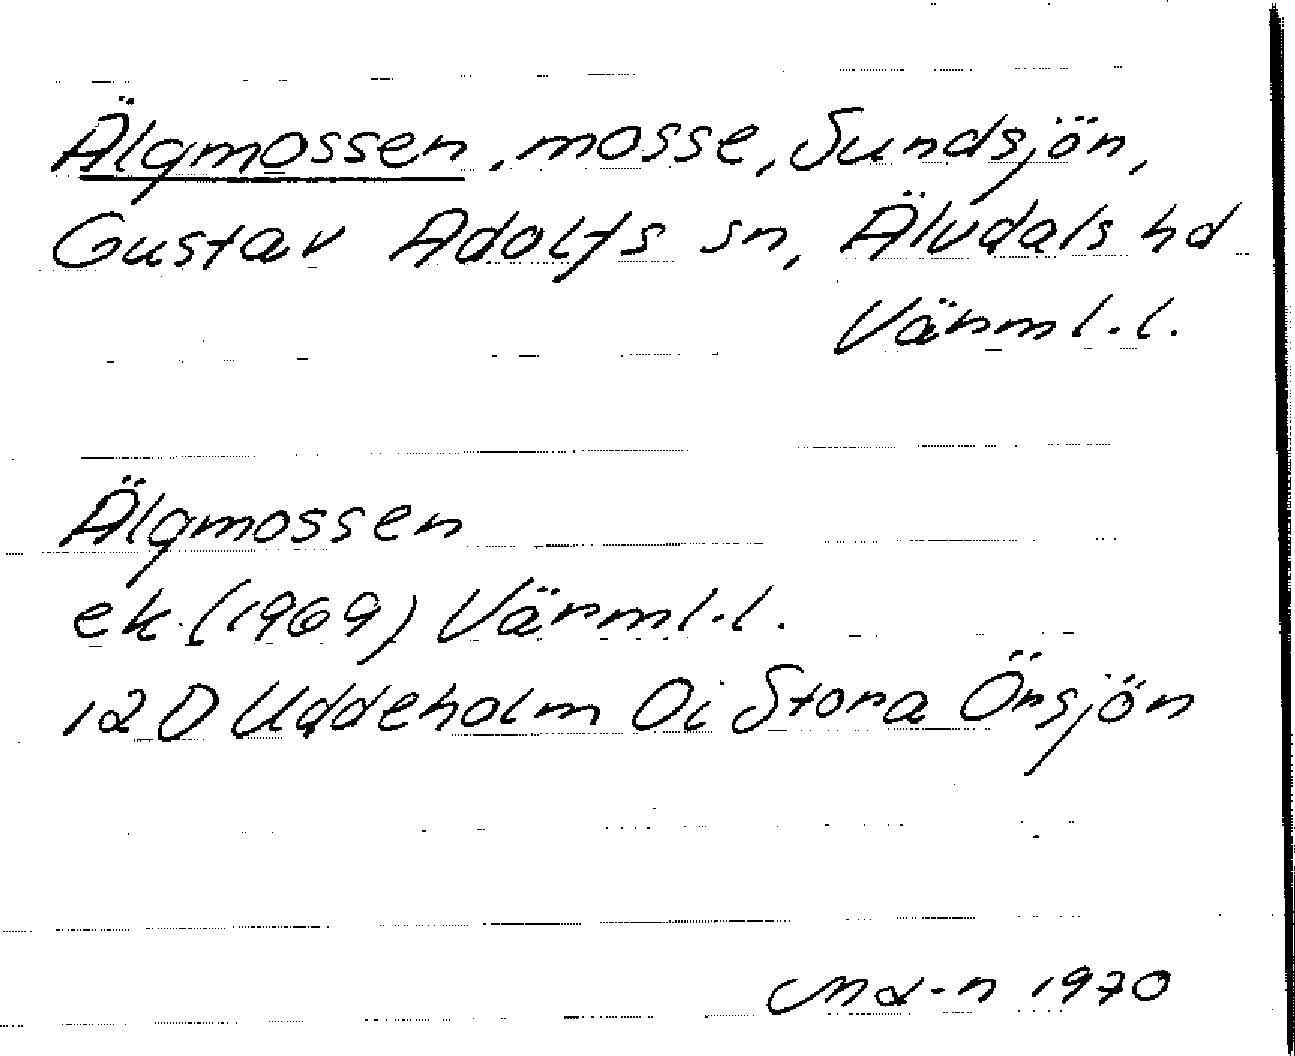 Älgmossen, mosse, Sundsjön,
Gustav Adolfs sn, Älvdals hd
Värml.l.
Älgmossen
ek.(1969) Värml.l.
12D Uddeholm 0i Stora Örsjön
Md-n 1970